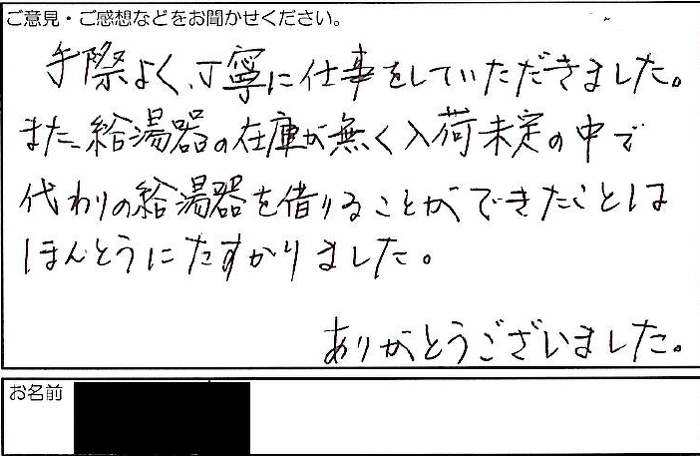 ご意見・ご感想などをお聞かせください。
手際よく、丁寧に仕事をしていただきました。
また、給湯器の在庫が無く入荷未定の中で
代わりの給湯器を借りることができたことは
ほんとうにたすかりました。
ありがとうございました。
お名前